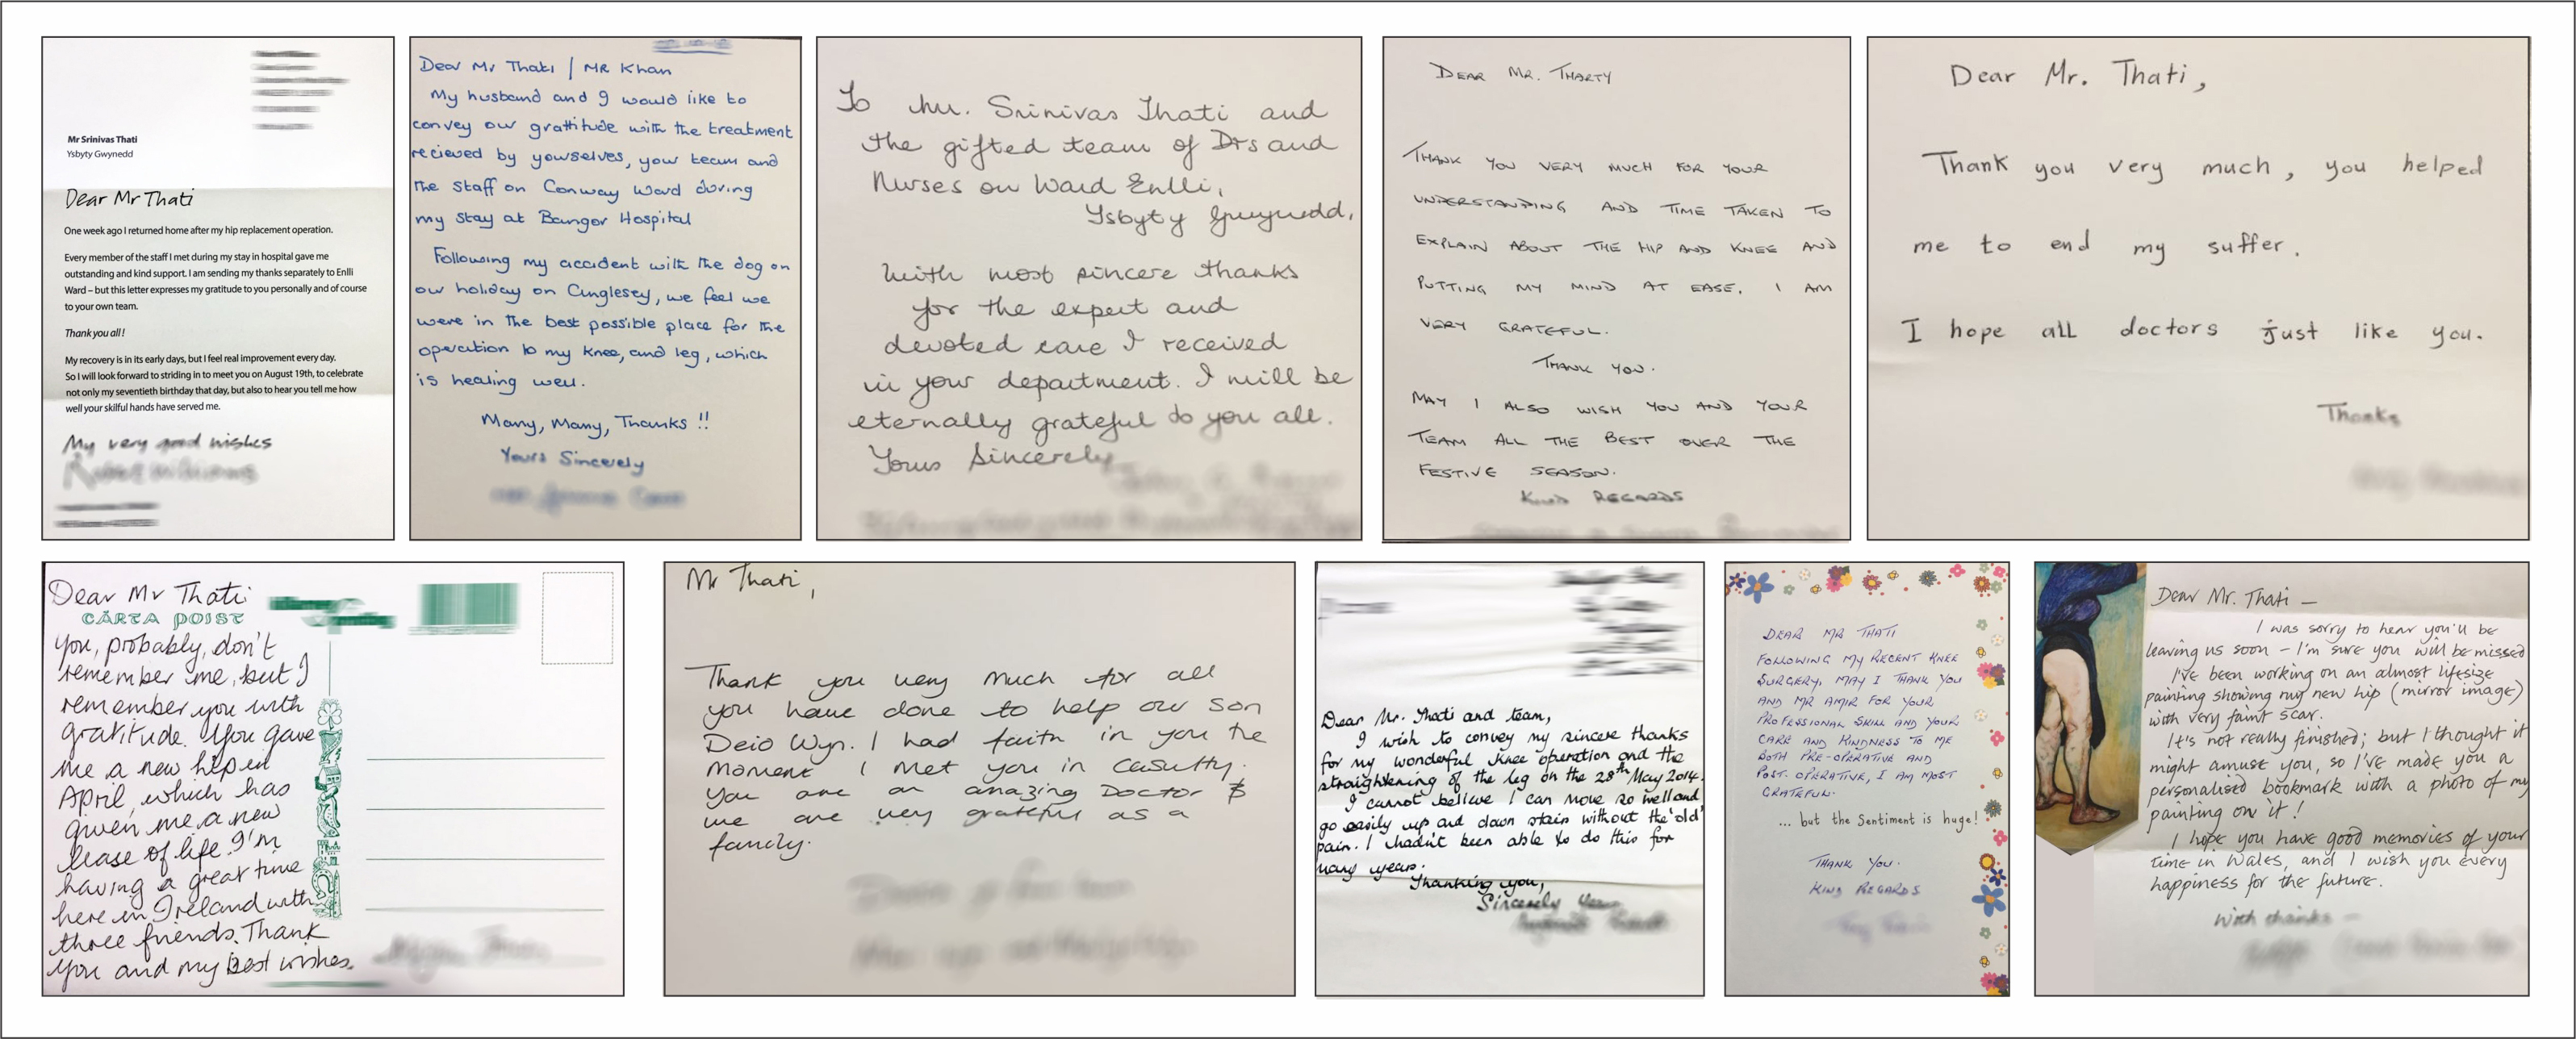 Mr Srinivas Thati
Ysbyty Gwynedd
Dear Mr Thati
One week ago I returned home after my hip replacement operation.
Every member of the staff I met during my stay in hospital gave me
outstanding and kind support. I am sending my thanks separately to Enlli
Ward – but this letter expresses my gratitude to you personally and of course
to your own team.
Thank you all!
My recovery is in its early days, but I feel real improvement every day.
So I will look forward to striding in to meet you on August 19th, to celebrate
not only my seventieth birthday that day, but also to hear you tell me how
well your skilful hands have served me.
My very good wishes
Dear Mr Thati / MR Khan
My husband and I would like to
convey our grattitude with the treatment
recieved by yourselves, your team and
the staff on Conway Ward during
my stay at Bangor Hospital
Following my accident with the dog on
our holiday on Anglesey, we feel we
were in the best possible place for the
operation to my knee, and leg, which
is healing well.
Many, Many, Thanks !!
Yours Sincerely
To Mr. Srinivas Thati and
the gifted team of Drs and
Nurses on Ward Enlli,
Ysbyty Gwynedd,
With most sincere thanks
for the expert and
devoted care I received
in your department. I will be
eternally grateful to you all.
Yours Sincerely
DEAR MR. THARTY
THANK YOU VERY MUCH FOR YOUR
UNDERSTANDING AND TIME TAKEN TO
EXPLAIN ABOUT THE HIP AND KNEE AND
PUTTING MY MIND AT EASE. I AM
VERY GRATEFUL.
THANK YOU.
MAY I ALSO WISH YOU AND YOUR
TEAM ALL THE BEST OVER THE
FESTIVE SEASON.
KIND REGARDS
Dear Mr. Thati,
Thank you very much, you helped
me to end my suffer.
I hope all doctors just like you.
Thanks
Dear Mr Thati
CÁRTA POIST
You, probably, don't
remember me, but I
remember you with
gratitude. You gave
me a new hip in
April, which has
given me a new
lease of life. I'm
having a great time
here in Ireland with
three friends. Thank
you and my best wishes.
Mr Thati,
Thank you very much for all
you have done to help our son
Deio Wyn. I had faith in you the
moment I met you in casulty.
You are an amazing Doctor &
we are very grateful as a
family.
Dear Mr. Thati and team,
I wish to convey my sincere thanks
for my wonderful knee operation and the
straightening of the leg on the 28th May 2014.
I cannot believe I can move so well and
go easily up and down stairs without the 'old'
pain. I hadn't been able to do this for
many years.
Thanking you,
Sincerely
DEAR MR THATI
FOLLOWING MY RECENT KNEE
SURGERY, MAY I THANK YOU
AND MR AMIR FOR YOUR
PROFESSIONAL SKILL AND YOUR
CARE AND KINDNESS TO ME
BOTH PRE-OPERATIVE AND
POST-OPERATIVE, I AM MOST
GRATEFUL.
... but the Sentiment is huge!
THANK YOU.
KIND REGARDS
Dear Mr. Thati —
I was sorry to hear you'll be
leaving us soon – I'm sure you will be missed
I've been working on an almost lifesize
painting showing my new hip (mirror image)
with very faint scar.
It's not really finished; but I thought it
might amuse you, so I've made you a
personalised bookmark with a photo of my
painting on it!
I hope you have good memories of your
time in Wales, and I wish you every
happiness for the future.
With thanks —